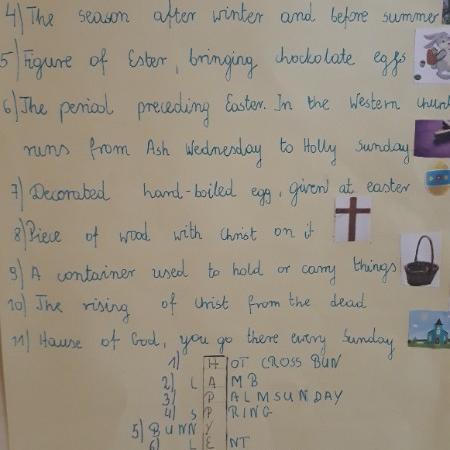 4) The season after winter and before summer
5) Figure of Ester, bringing chockolate eggs
6) The period preceding Easter. In the Western church
runs from Ash Wednesday to Holly Sunday
7) Decorated hard-boiled egg, given at easter
8) Piece of wood with Christ on it
9) A container used to hold or carry things
10) The rising of Christ from the dead
11) Hause of God, you go there every Sunday
1) HOT CROSS BUN
2) LAMB
3) PALMSUNDAY
4) SPRING
5) BUNNY
6) LENT